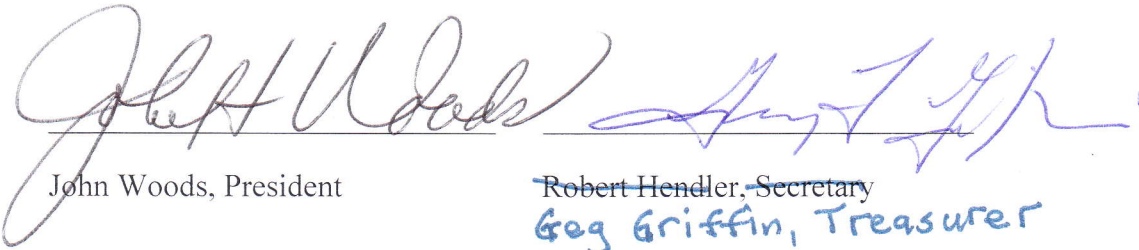 John H Woods
John Woods, President
Robert Hendler, Secretary
Geg Griffin, Treasurer